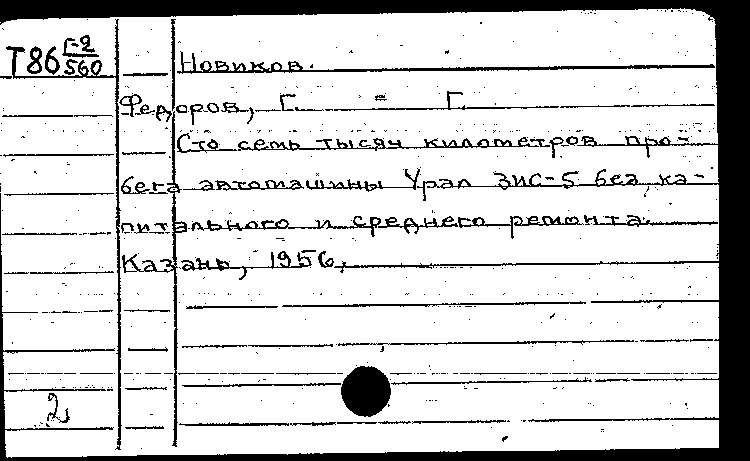 Т86 Г-2/560
Новиков.
Федоров, Г. = Г.
Сто семь тысяч километров про-
бега автомашины Урал ЗИС-5 без ка-
питального и среднего ремонта.
Казань, 1956,
2